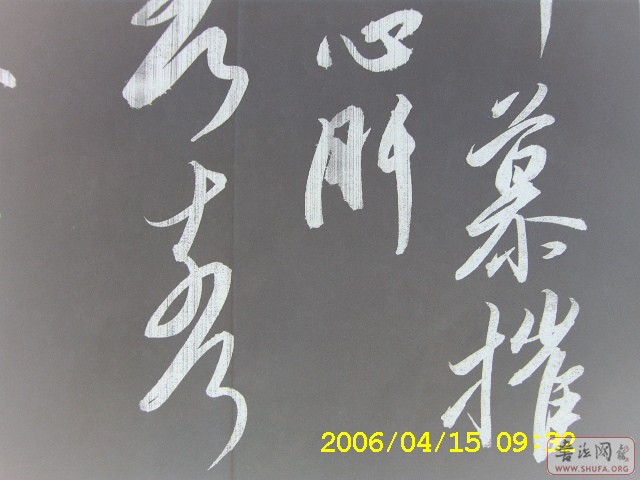 慕摧
心肝
奈何
2006/04/15 09:
书法网
WWW.SHUFA.ORG